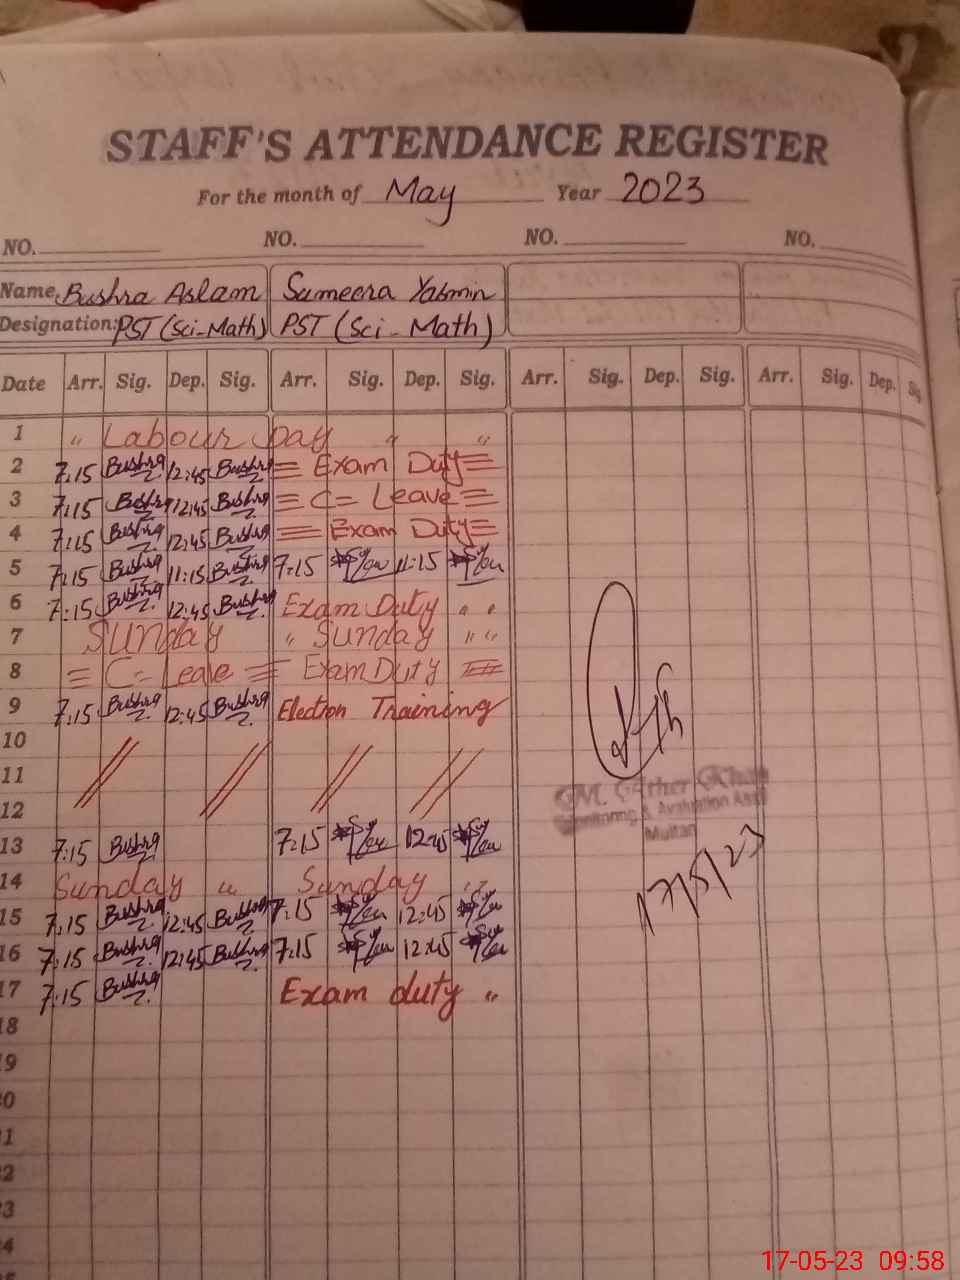 STAFF'S ATTENDANCE REGISTER
For the month of May Year 2023
NO. NO. NO. NO.
Name Bushra Aslam Sumeera Yasmin
Designation: PST (Sci-Math) PST (Sci-Math)
Date Arr. Sig. Dep. Sig. Arr. Sig. Dep. Sig. Arr. Sig. Dep. Sig. Arr. Sig. Dep. Sig.
1 " Labour Day " "
2 7:15 Bushra 12:45 Bushra = Exam Duty =
3 7:15 Bushra 12:45 Bushra = C= Leave =
4 7:15 Bushra 12:45 Bushra = Exam Duty =
5 7:15 Bushra 11:15 Bushra 7:15 11:15
6 7:15 Bushra 12:45 Bushra Exam Duty " "
7 Sunday " Sunday " "
8 = C= Leave = Exam Duty =
9 7:15 Bushra 12:45 Bushra Election Training
10
11 // // // //
12
13 7:15 Bushra 7:15 12:45
14 Sunday " Sunday "
15 7:15 Bushra 12:45 Bushra 7:15 12:45
16 7:15 Bushra 12:45 Bushra 7:15 12:45
17 7:15 Bushra Exam duty "
18
19
20
21
22
23
24
M. Ather Khan
Monitoring & Evaluation Asst
Multan
17/5/23
17-05-23 09:58